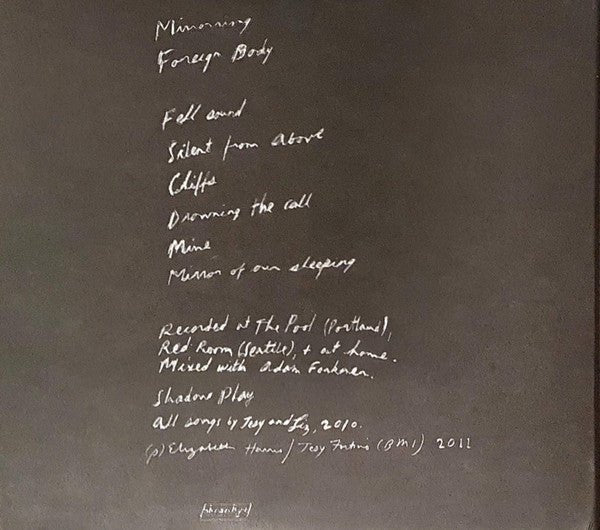 Mirrorring
Foreign Body
Fell sound
Silent from above
Cliffs
Drowning the call
Mine
Mirror of our sleeping
Recorded at The Pool (Portland),
Red Room (Seattle), + at home.
Mixed with Adam Forkner.
Shadow Play
All songs by Jesy and Liz, 2010.
(p) Elizabeth Harris / Jesy Fortino (BMI) 2011